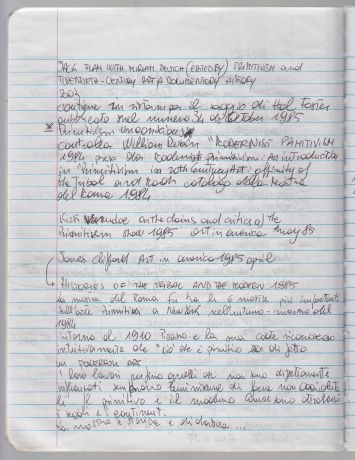 JACK FLAM WITH MIRIAM DEUTCH (EDITED BY) PRIMITIVISM and
TWENTIETH-CENTURY ART A DOCUMENTARY HISTORY
2003
contiene in ristampa il saggio di Hal Foster
pubblicato nel numero 34 di October 1985
Primitivism
William Rubin "MODERNIST PRIMITIVISM
1984 Primitivism: An introduction
in Primitivism in 20th Century Art: affinity of
the Tribal and Modern catalogo della mostra
del Moma 1984
Kirk Varnedoe on the claims and critics of the
Primitivism show 1985 art in america may 85
James Clifford Art in america 1985 april
HISTORIES OF THE TRIBAL AND THE MODERN 1985
La mostra del Moma fu tra le 6 mostre più importanti
sull'arte primitiva a New York nell'autunno-inverno del
1984
Intorno al 1910 Picasso e la sua coorte riconoscono
intuitivamente che "ciò che è primitivo di fatto
un POWERFUL ART
I loro lavori perfino quelli che non sono direttamente
influenzati
il primitivo e il moderno attraverso
i secoli e i continenti.
La mostra è grande e didattica...